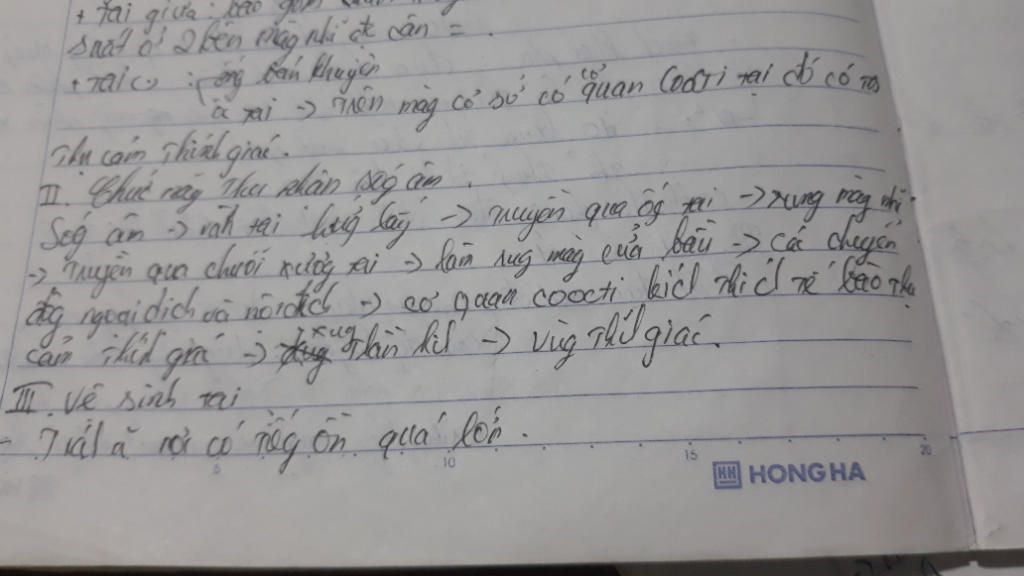 + tai giữa : bao gồm
suất ở 2 bên màg nhĩ đc cân = .
+ Tai (-) : ốg bán khuyên
ốc tai -> Trên màg cơ sở có cơ quan Coocti tại đó có TB
Thụ cảm Thíhh giác.
II. Chức năg Thu nhận sóg âm.
Sóg âm -> vàh tai hướg lấy -> Truyền qua ốg tai -> rug màg nhĩ
-> Truyền qua chuỗi xươg tai -> làm rug màg cửa bầu -> các chuyển
độg ngoại dịch và nội dịch -> cơ quan coocti kích Thích Tế bào Thụ
cảm Thíh giác -> xug Thần kih -> vùg Thíh giác.
III. Vệ sinh tai
- Tráh nơi có tiếg ồn quá lớn.
5 10 15 20
HH HONG HA